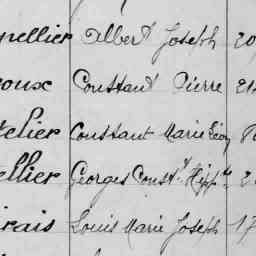 pellier Albert Joseph 20
oux Constant Pierre 21
telier Constant Marie Léon
ellier Georges Const.t Hipp.te 2
rais Louis Marie Joseph 17